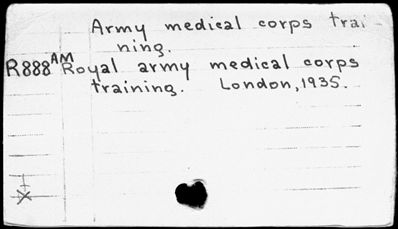 Army medical corps trai
ning.
R888AM Royal army medical corps
training. London, 1935.